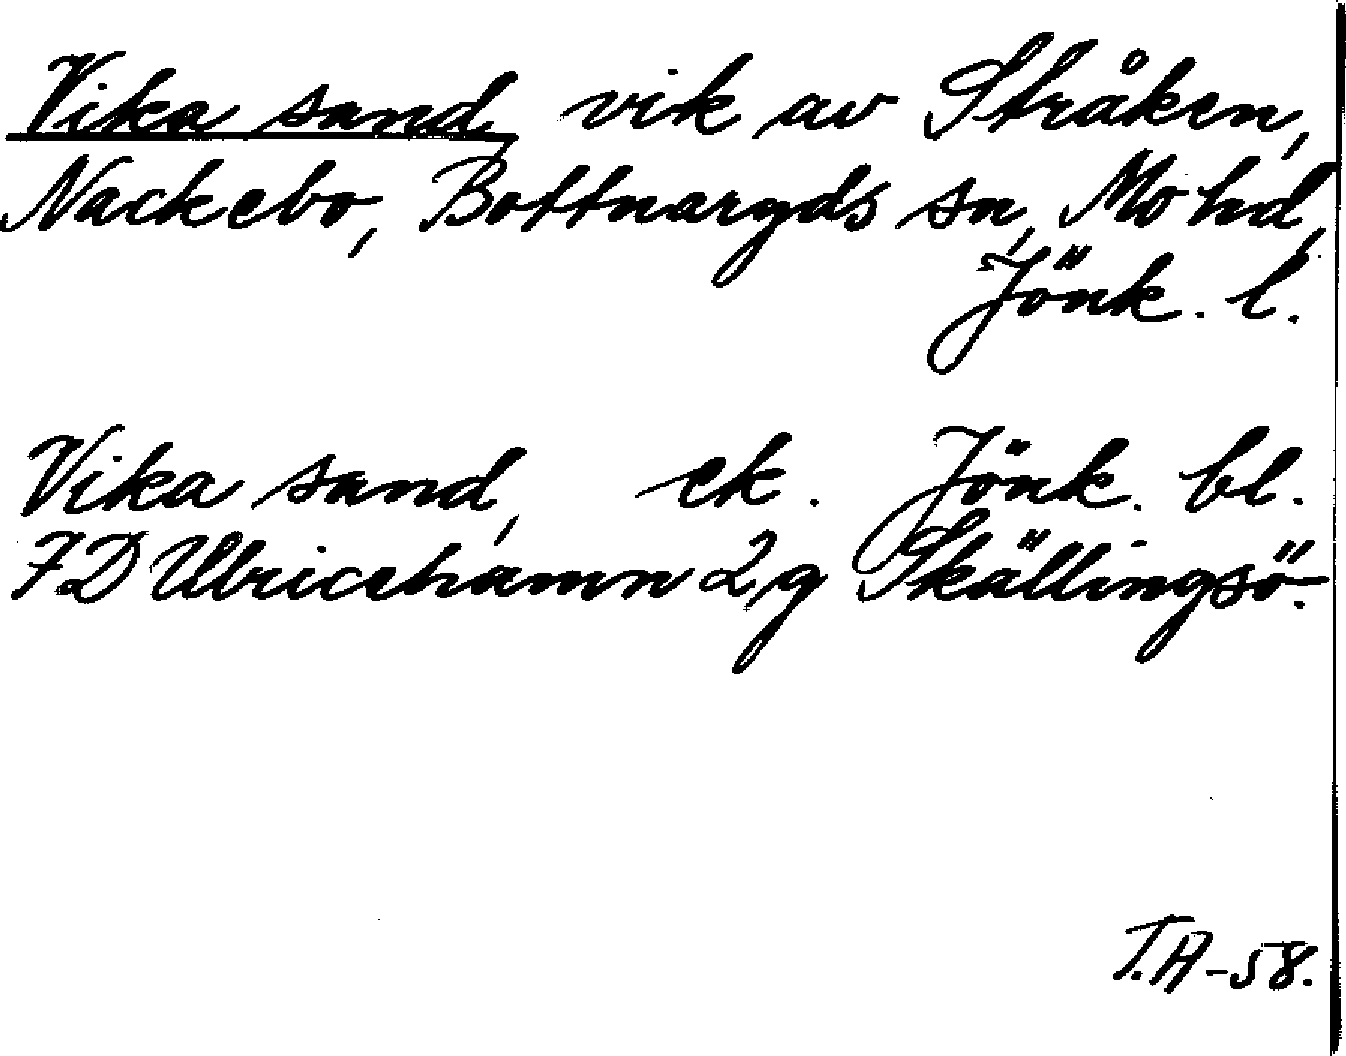 Vika sand, vik av Stråken,
Nackebo, Bottnaryds sn, Mo hd,
Jönk. l.
Vika sand, ek. Jönk. bl.
7D Ulricehamn 2,g Skällingsö.
T.A-58.